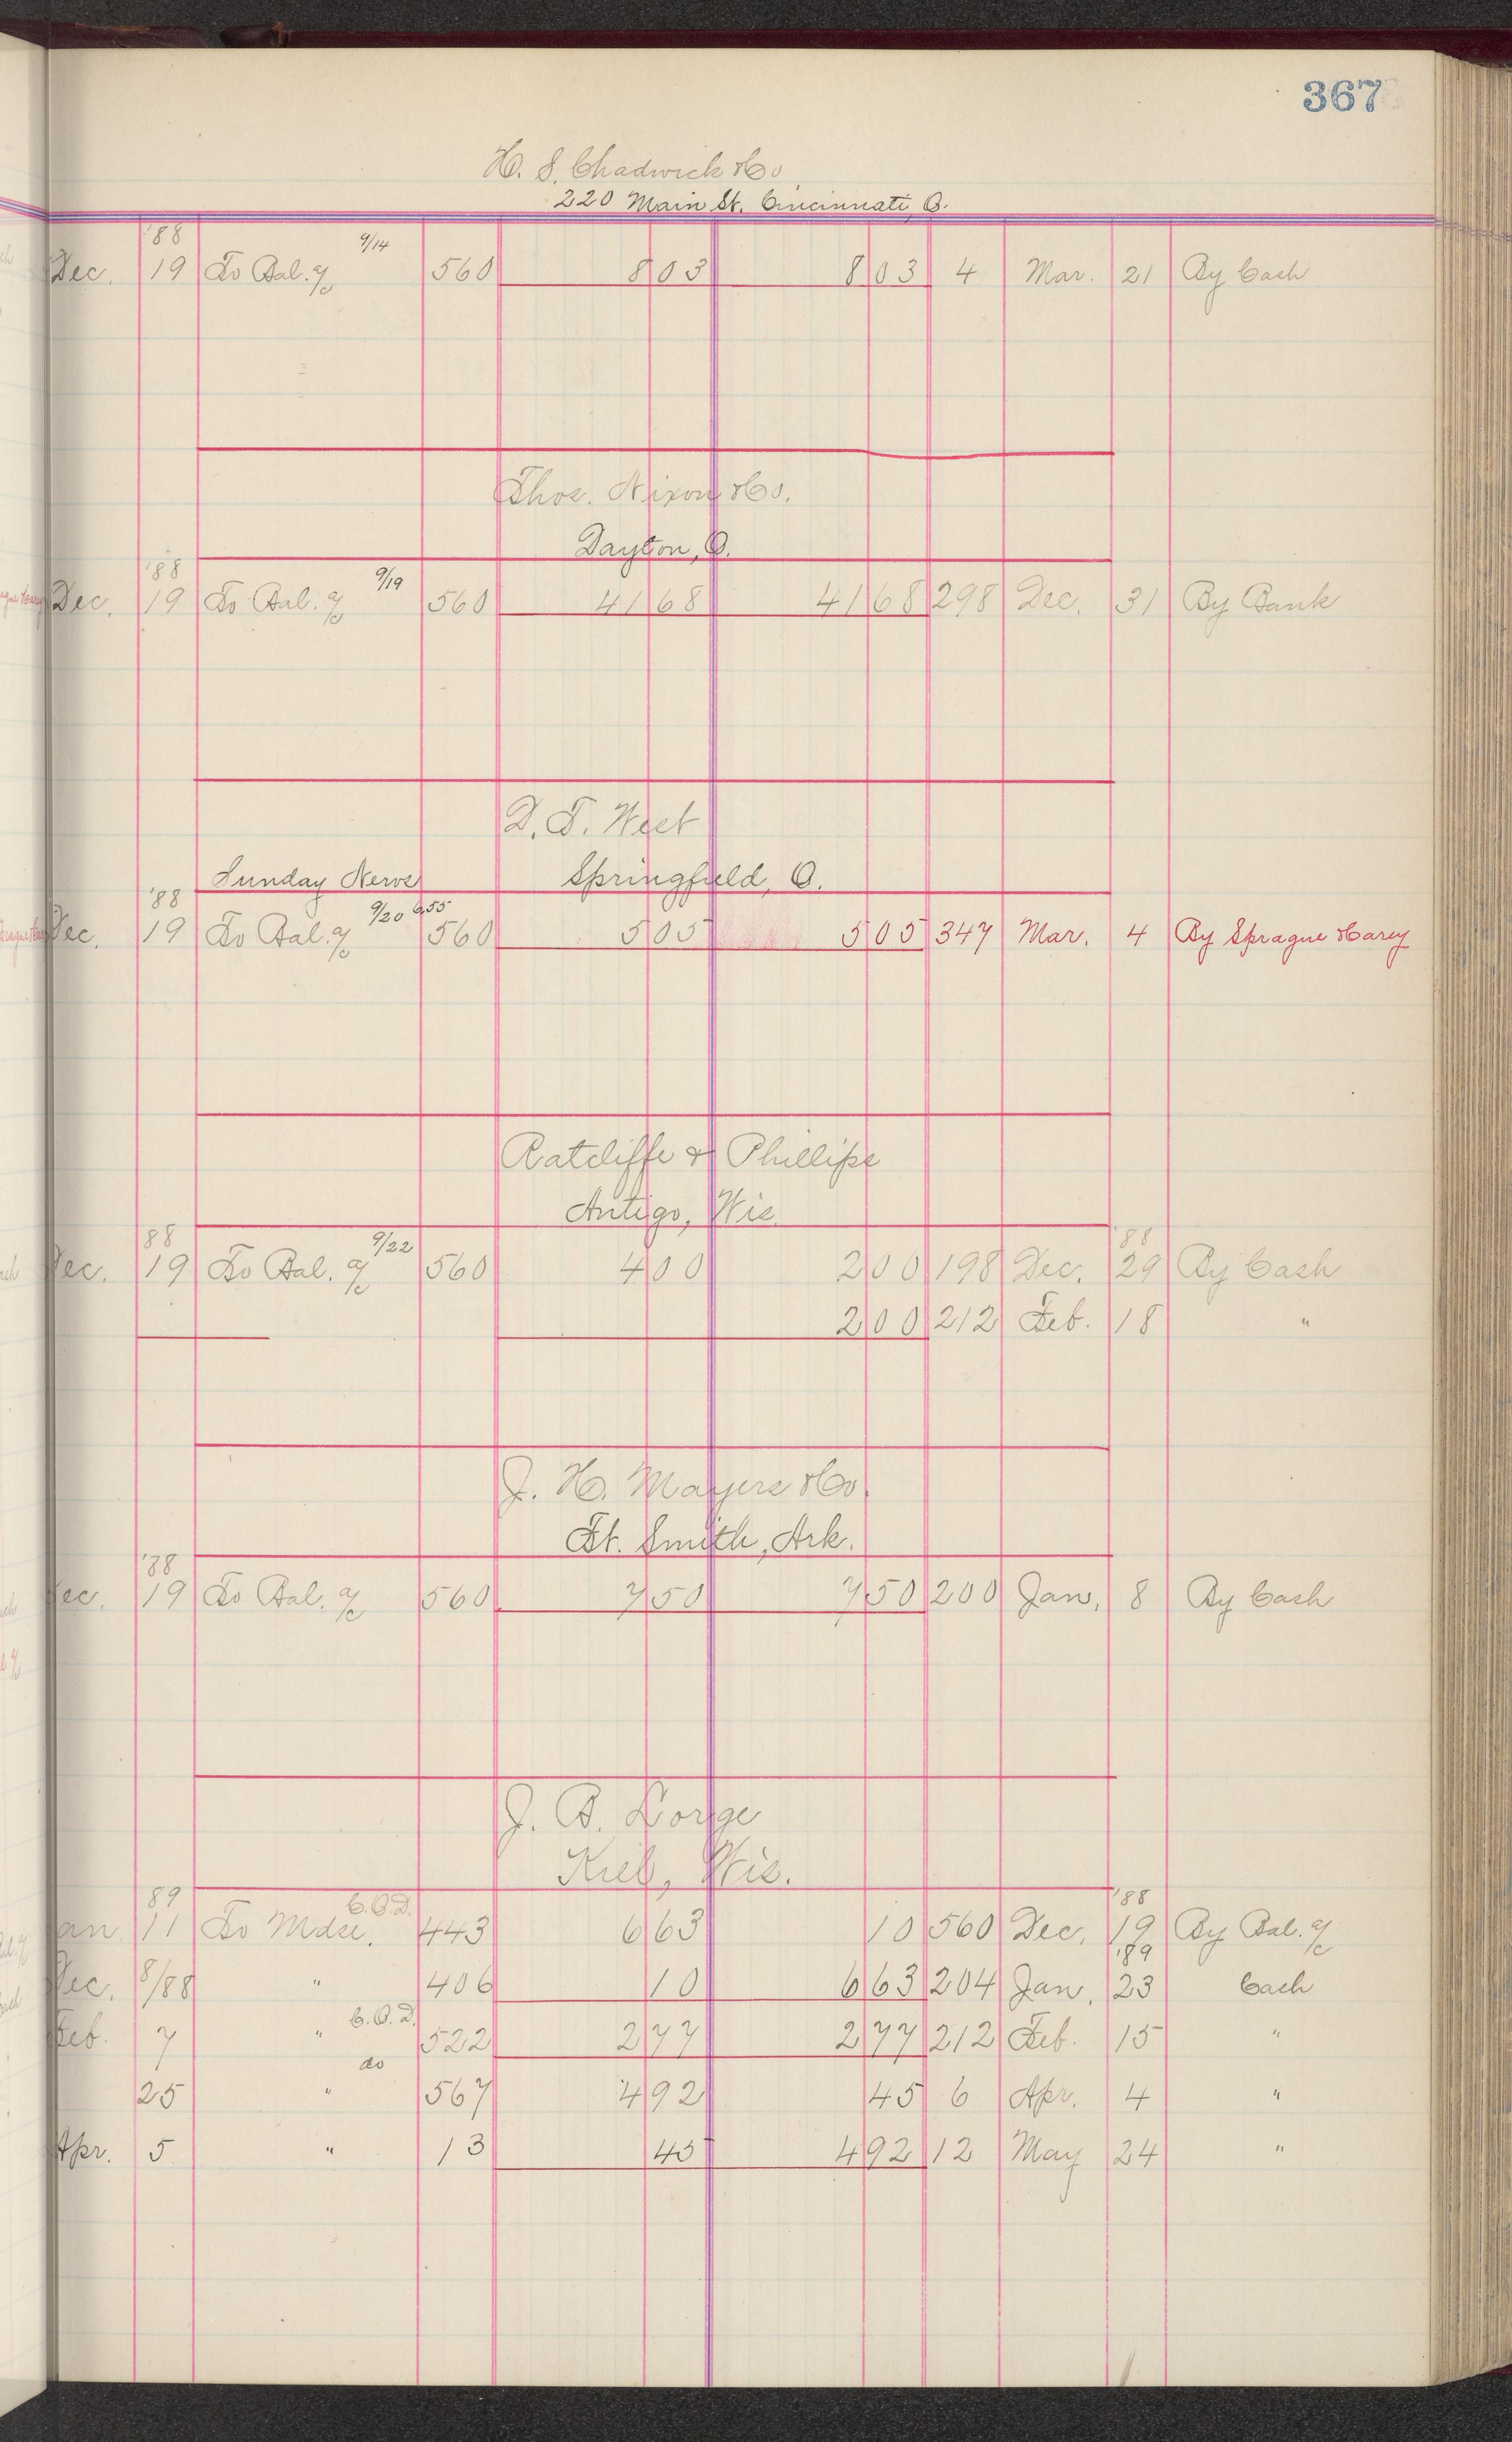 367
H. S. Chadwick & Co
220 Main St. Cincinnati, O.
'88 9/14
Dec. 19 To Bal. a/c 560 8 03 8 03 4 Mar. 21 By Cash
Thos. Nixon & Co.
Dayton, O.
'88 9/19
Dec. 19 To Bal. a/c 560 41 68 41 68 298 Dec. 31 By Bank
D. T. West
Sunday News Springfield, O.
'88 9/20 6,55
Dec. 19 To Bal. a/c 560 5 05 5 05 347 Mar. 4 By Sprague & Carey
Ratcliffe & Phillips
Antigo, Wis.
88 9/22 '88
Dec. 19 To Bal. a/c 560 4 00 2 00 198 Dec. 29 By Cash
2 00 212 Feb. 18 "
J. H. Mayers & Co.
Ft. Smith, Ark.
'88
Dec. 19 To Bal. a/c 560 7 50 7 50 200 Jan. 8 By Cash
J. B. Lorge
Kiel, Wis.
89 C.O.D. '88
Jan 11 To Mdse. 443 6 63 10 560 Dec. 19 By Bal. a/c
'89
Dec. 8/88 " 406 10 6 63 204 Jan. 23 Cash
Feb. 7 " C.O.D. 522 2 77 2 77 212 Feb. 15 "
do
25 " 567 4 92 45 6 Apr. 4 "
Apr. 5 " 13 45 4 92 12 May 24 "